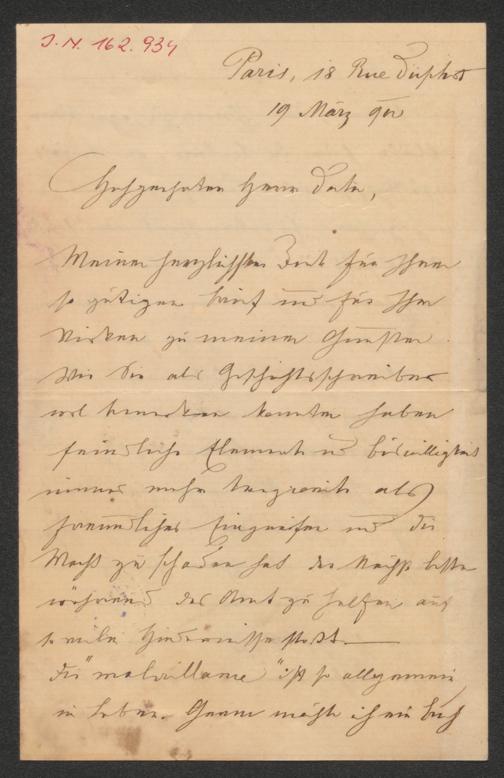 J. N. 162.934
Paris, 18 Rue Duphot
19 März 900
Hochgeehrter Herr
Meinen herzlichsten Dank für Ihren
so gütigen Brief und für Ihr
Wirken zu meinen Gunsten.
Wie Sie als Geschichtsschreiber
wol bemerken konnten haben
feindliche Elemente u böswilligkeit
immer mehr als
freundliches Eingreifen und die
Macht zu schaden hat der Nächst beste
während der zu helfen auf
so viele Hindernisse stosst.
Die "malveillance" ist so allgemein
im Leben. Gerne möchte ich ein